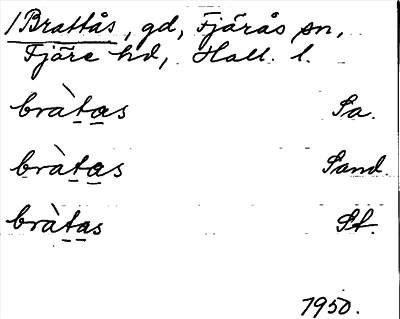 1 Brattås, gd, Fjärås sn,
Fjäre hd, Hall. l.
bràtas Sa.
bràtas Sand.
bràtas St.
1950.